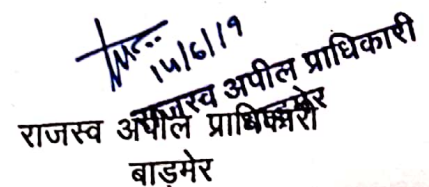 14/6/19
राजस्व अपील प्राधिकारी
बाड़मेर
राजस्व अपील प्राधिकारी
बाड़मेर